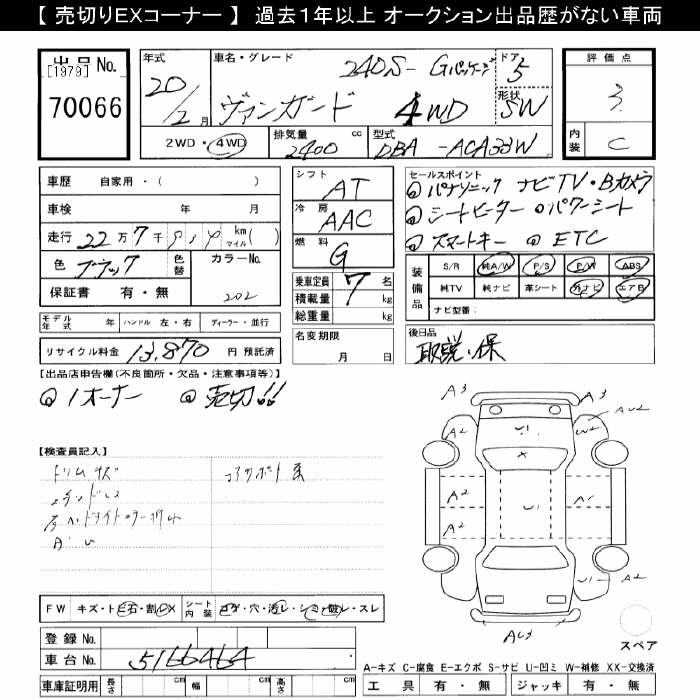 【 売切りEXコーナー 】 過去１年以上 オークション出品歴がない車両
出品No.
[1979]
70066
年式
20/2月
車名・グレード
240S-Gパッケージ
ヴァンガード 4WD
ドア
5
形状
SW
2WD・4WD
排気量 2400 cc
型式 DBA-ACA33W
評価点
3
内装 C
車歴 自家用・( )
車検 年 月
走行 22万7千 km マイル( )
色 ブラック 色替 カラーNo.
202
保証書 有・無
モデル年式 年 ハンドル 左・右 ディーラー・並行
リサイクル料金 13,870 円 預託済
シフト AT
冷房 AAC
燃料 G
乗車定員 7 名
積載量 kg
総重量 kg
名変期限
月 日
セールスポイント
◎パナソニック ナビTV・Bカメラ
◎シートヒーター ◎パワーシート
◎スマートキー ◎ETC
装備品
S/R 純A/W P/S P/W ABS
純TV 純ナビ 革シート 外ナビ エアB
ナビ型番:
後日品
取説・保
【出品店申告欄(不良箇所・欠品・注意事項等)】
◎1オーナー ◎売切!!
【検査員記入】
A・U
FW キズ・トビ石・割レX シート内装 コゲ・穴・汚レ・シミ・破レ・スレ
登録No.
車台No. 5166464
車庫証明用 長さ cm 幅 cm 高さ cm
A3 A3
A2 U1 W2 AU2
X
A2 U1 A1
A2
U1 A2
AU3
スペア
A-キズ C-腐食 E-エクボ S-サビ U-凹ミ W-補修 XX-交換済
工具 有・無 ジャッキ 有・無